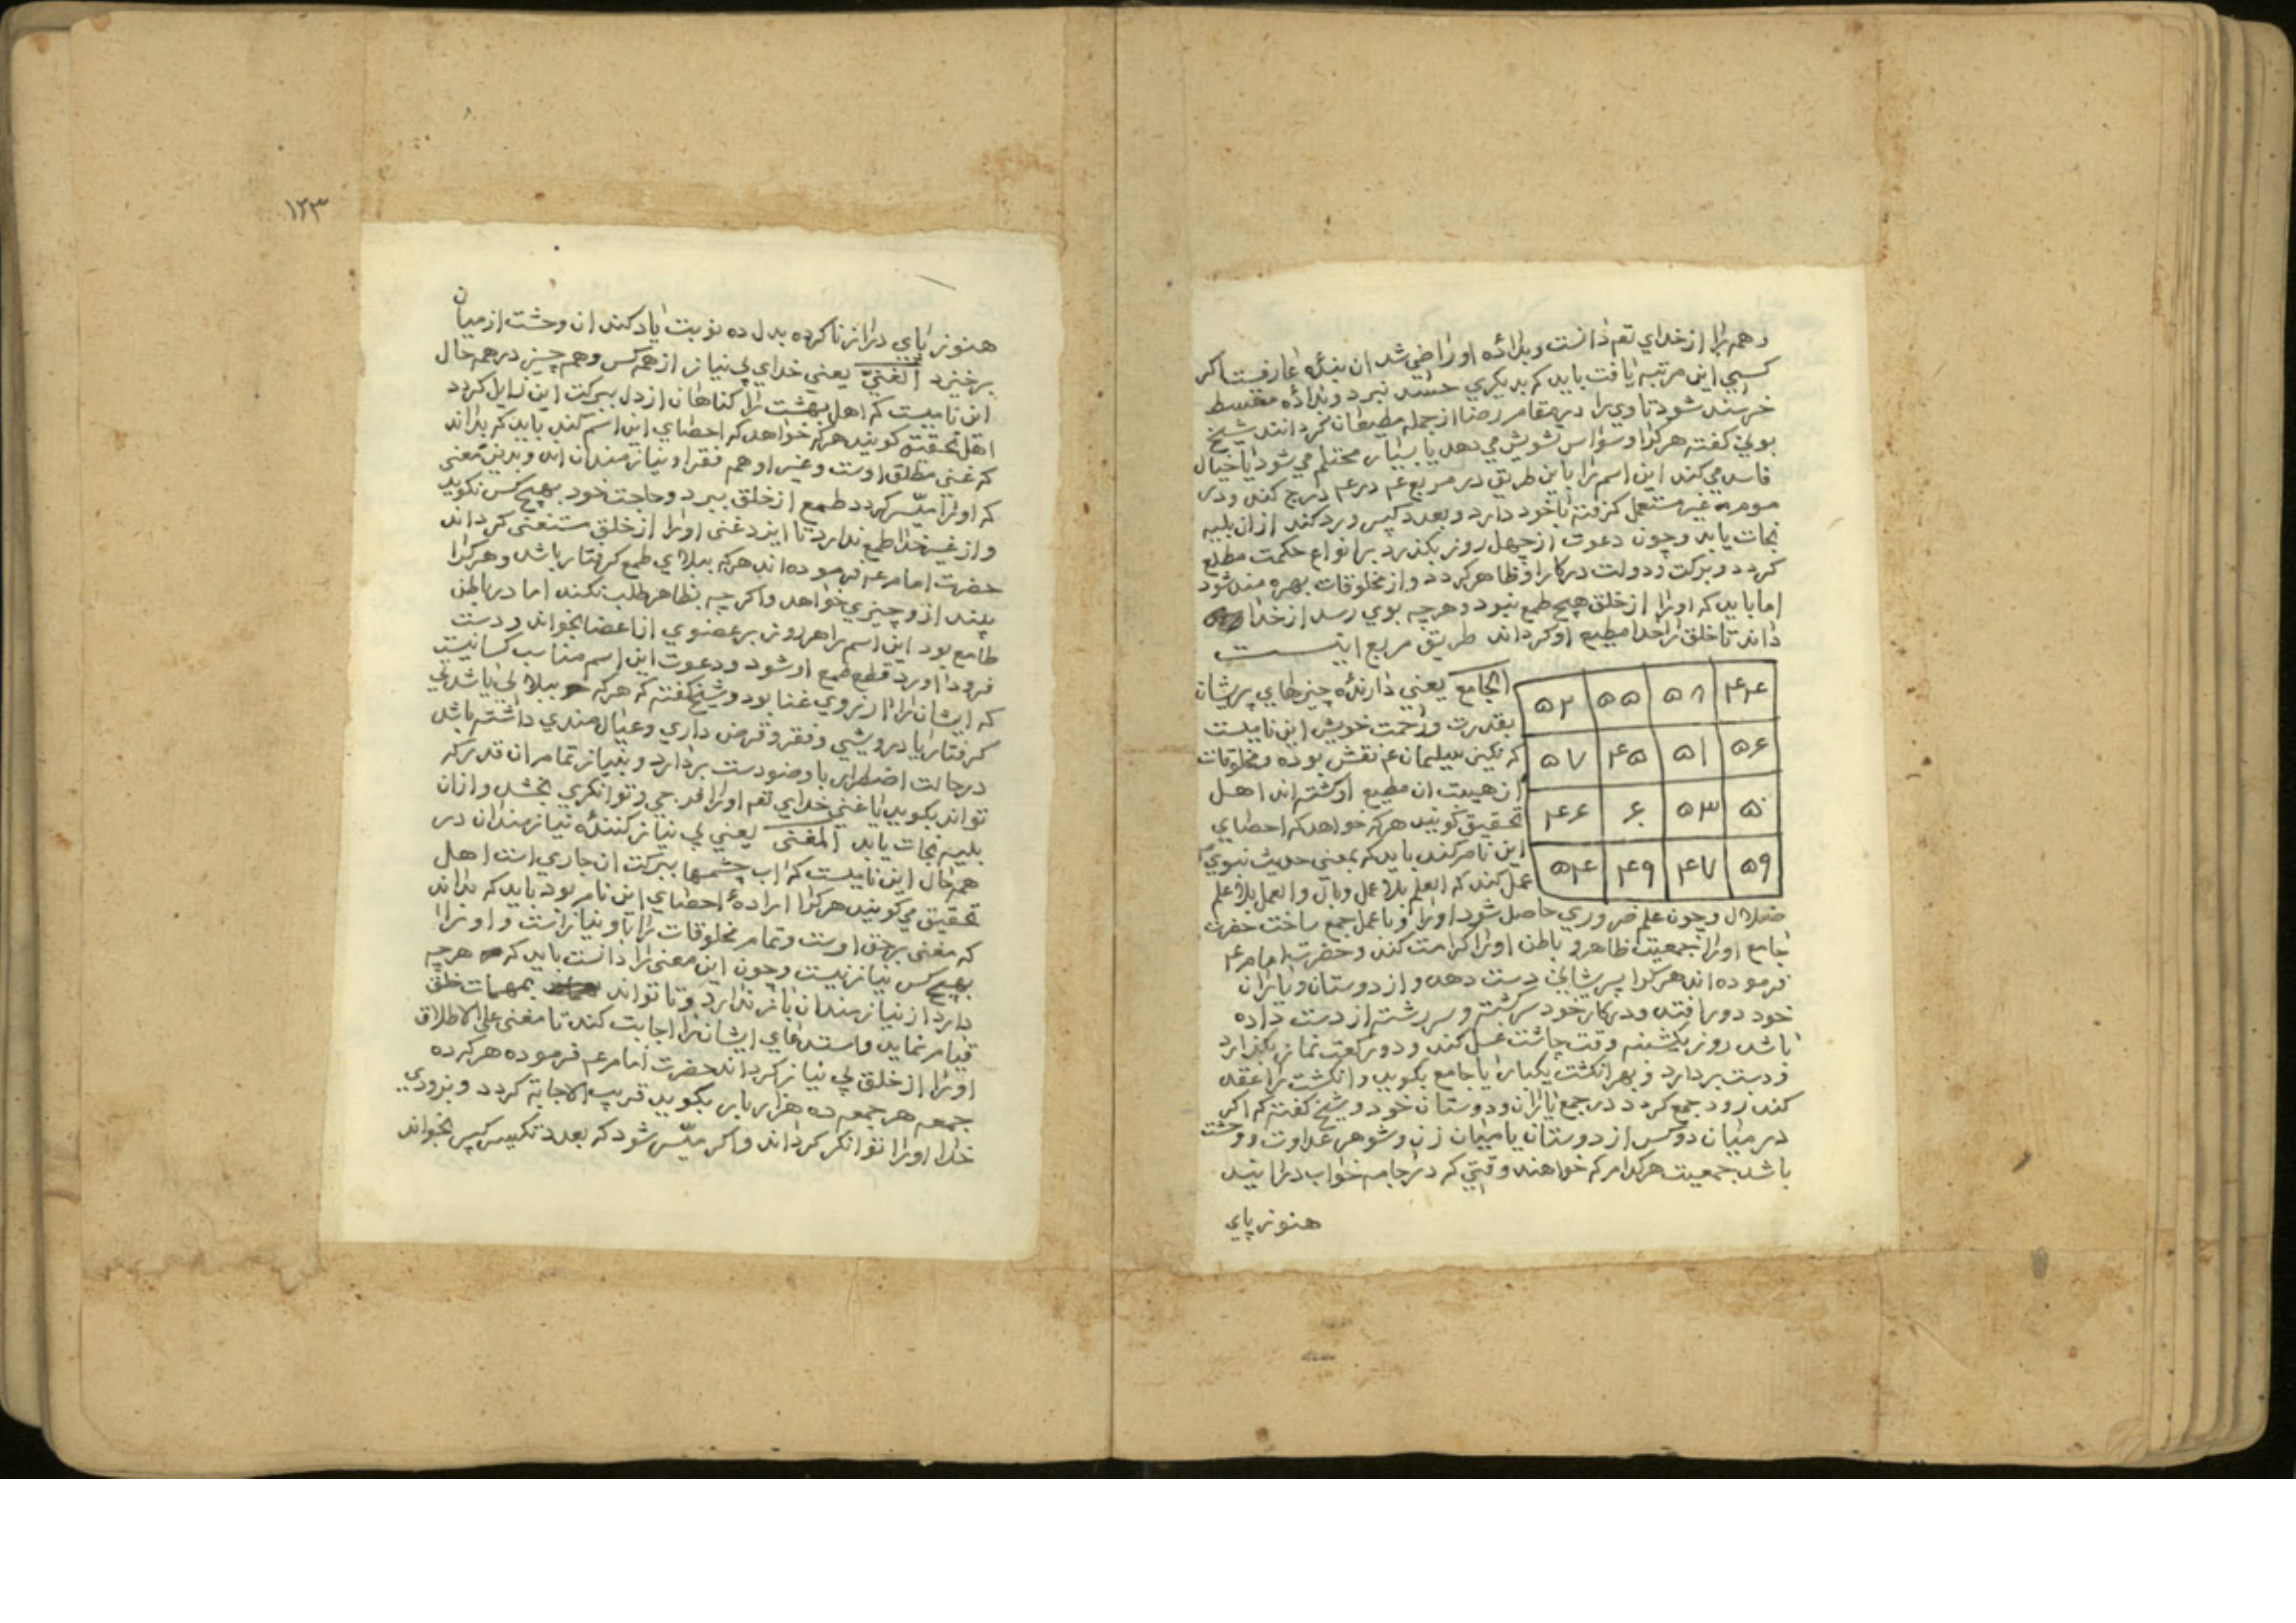 و همه را از خدای تعم دانست و بداده او راضی شد ان بنده عارفست اکر
کسی این مرتبه یافت باید که بدیکری حسد نبرد و بداده مقسط
خرسند شود تا وی را در مقام رضا از جمله مطیعان کردانند شیخ
بونی کفته هر کرا وسواس تشویش می دهد یا بسیار محتلم می شود یا خیال
فاسد می کند این اسم را باین طریق در مربع ۴ در ۴ درج کند و در
موم غیر مستعمل کرفته با خود دارد و بعدد کبیر ورد کند از ان بلیه
نجات یابد و چون دعوت از چهل روز بکذرد بر انواع حکمت مطلع
کردد و برکت و دولت در کار او ظاهر کردد و از مخلوقات بهره مند شود
اما باید که او را از خلق هیچ طمع نبود و هر چه بوی رسد از خدا
داند تا خلق را خدا مطیع او کرداند طریق مربع اینست
۴۴ ۵۸ ۵۵ ۵۲
۵۶ ۵۱ ۴۵ ۵۷
۵۰ ۵۳ ۶ ۴۶
۵۹ ۴۷ ۴۹ ۵۴
الجامع یعنی دارنده چیزهای پریشان
بقدرت و رحمت خویش این نامیست
که نکین سلیمان عم نقش بوده و مخلوقات
از هیبت ان مطیع او کشته اند اهل
تحقیق کویند هر که خواهد که احصای
این نام کند باید که بمعنی حدیث نبوی
عمل کند که العلم بلا عمل وبال والعمل بلا علم
ضلال و چون علم ضروری حاصل شود او را و با عمل جمع ساخت حضرت
جامع او را جمعیت ظاهر و باطن او را کرامت کند و حضرت امام عم
فرموده اند هر کرا پریشانی دست دهد و از دوستان و یاران
خود دور افتد و در کار خود سرکشته و سر رشته از دست داده
باشد روز یکشنبه وقت چاشت غسل کند و دو رکعت نماز بکذارد
و دست بردارد و بهر انکشت یکبار یا جامع بکوید و انکشت را عقد
کند زود جمع کردد در جمع یاران و دوستان خود و شیخ کفته که اکر
در میان دو کس از دوستان یا میان زن و شوهر عداوت و وحشت
باشد جمعیت هر کدام که خواهند وقتی که در جامه خواب در ایند
هنوز پای
۱۲۳
هنوز پای دراز ناکرده بدل ده نوبت یاد کند ان وحشت از میان
برخیزد الغنی یعنی خدای بی نیاز از همه کس و همه چیز در همه حال
این نامیست که اهل بهشت را کناهان از دل ببرکت این زایل کردد
اهل تحقیق کویند هر که خواهد که احصای این اسم کند باید که بداند
که غنی مطلق اوست و غیر او همه فقرا و نیازمندان اند و بدین معنی
که او را میسر کردد طمع از خلق ببرد و حاجت خود بهیچ کس نکوید
و از غیر خدا طمع ندارد تا ایزد غنی او را از خلق مستغنی کرداند
حضرت امام عم فرموده اند هر که ببلای طمع کرفتار باشد و هر کرا
بیند ازو چیزی خواهد و اکر چه بظاهر طلب نکند اما در باطن
طامع بود این اسم را هر روز بر عضوی از اعضا بخواند و دست
فرود اورد قطع طمع او شود و دعوت این اسم مناسب کسانیست
که ایشان را ارزوی غنا بود و شیخ کفته که هر که ببلایی یا شدتی
کرفتار یا درویشی و فقر و قرض داری و عیال مندی داشته باشد
در حالت اضطرار با وضو دست بردارد و بنیاز تمام ان قدر که
تواند بکوید یا غنی خدای تعم او را فرجی و توانکری بخشد و از ان
بلیه نجات یابد المغنی یعنی بی نیاز کننده نیازمندان در
همه حال این نامیست که اب چشمها ببرکت ان جاری است اهل
تحقیق می کویند هر کرا اراده احصای این نام بود باید که بداند
که مغنی برحق اوست و تمام مخلوقات را باو نیاز است و او را
بهیچ کس نیاز نیست و چون این معنی را دانست باید که هر چه
دارد از نیازمندان باز ندارد و تا تواند بمهمات خلق
قیام نماید و استدعای ایشان را اجابت کند تا مغنی علی الاطلاق
او را از خلق بی نیاز کرداند حضرت امام عم فرموده هر که ده
جمعه هر جمعه ده هزار بار بکوید قریب الاجابة کردد و بزودی
خدا او را توانکر کرداند و اکر میسر شود که بعدد تکبیر کبیر بخواند